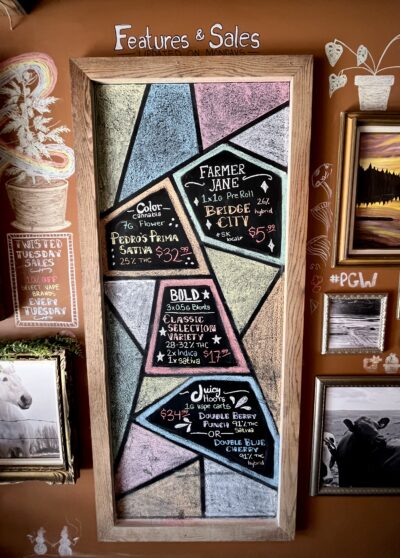 Features & Sales
UPDATED ON MONDAYS
FARMER
JANE
1x1g Pre Roll
BRIDGE
CITY
26%
hybrid
$5.99
Color
cannabis
7g Flower
PEDRO'S PRIMA
SATIVA
25% THC
$32.99
TWISTED
TUESDAY
SALES
10% OFF
SELECT VAPE
BRANDS
EVERY
TUESDAY
#PGW
BOLD
3x0.5g Blunts
CLASSIC
SELECTION
VARIETY
28-32% THC
2x Indica
1x Sativa
$17.99
Juicy
Hoots
1g vape carts
$34.99
DOUBLE BERRY
PUNCH 91% THC
Sativa
-OR-
DOUBLE BLUE
CHERRY 91% THC
hybrid